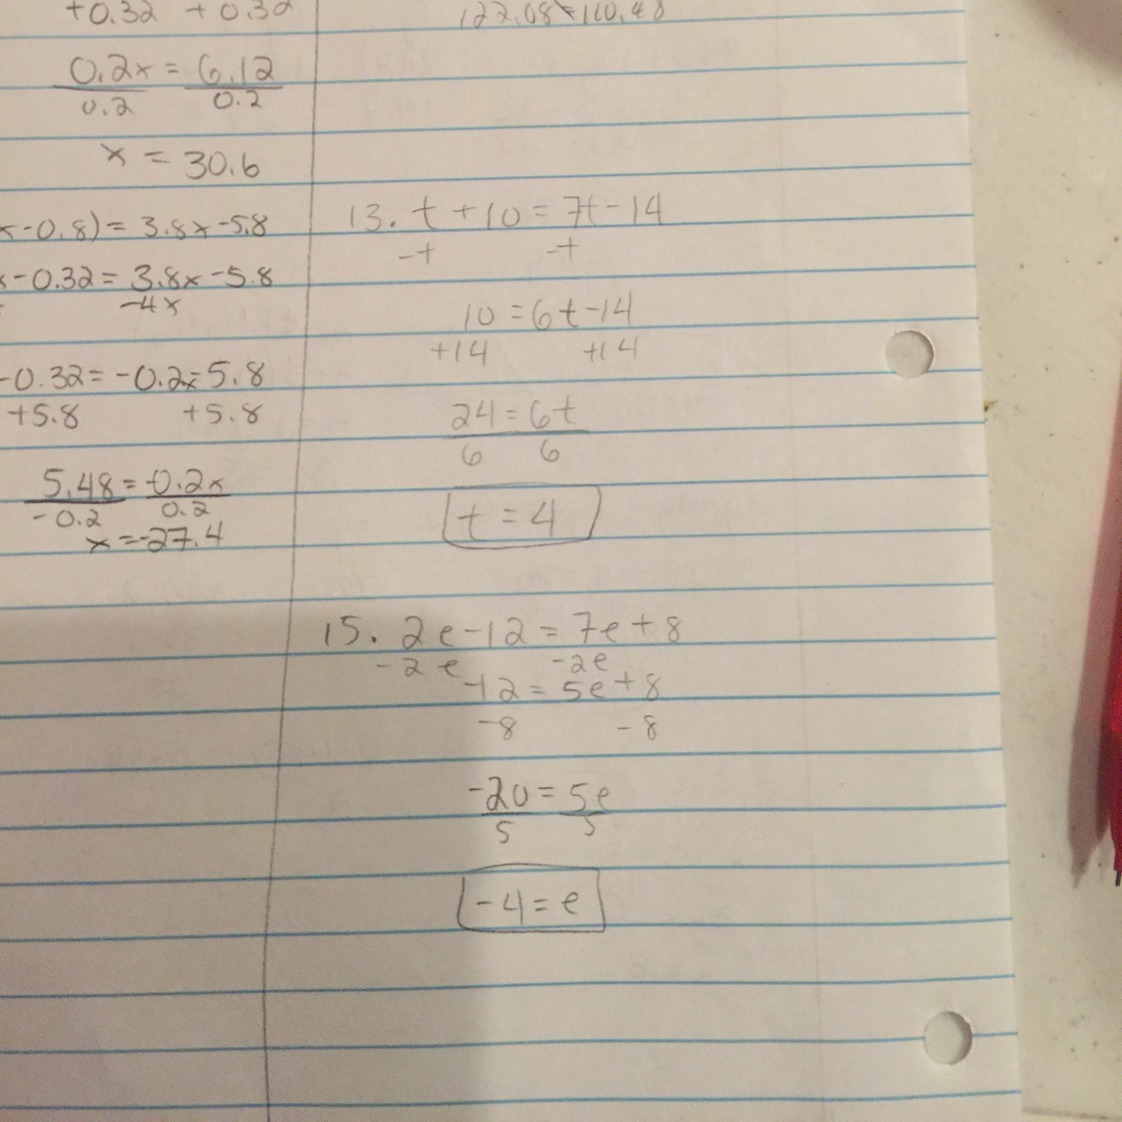 +0.32 +0.32
0.2x = 6.12
0.2 0.2
x = 30.6
x-0.8) = 3.8x-5.8
x-0.32 = 3.8x-5.8
-4x
-0.32 = -0.2x-5.8
+5.8 +5.8
5.48 = -0.2x
-0.2 0.2
x = -27.4
122.08 110.48
13. t + 10 = 7t - 14
-t -t
10 = 6t - 14
+14 +14
24 = 6t
6 6
t = 4
15. 2e - 12 = 7e + 8
-2e -2e
-12 = 5e + 8
-8 -8
-20 = 5e
5 5
-4 = e